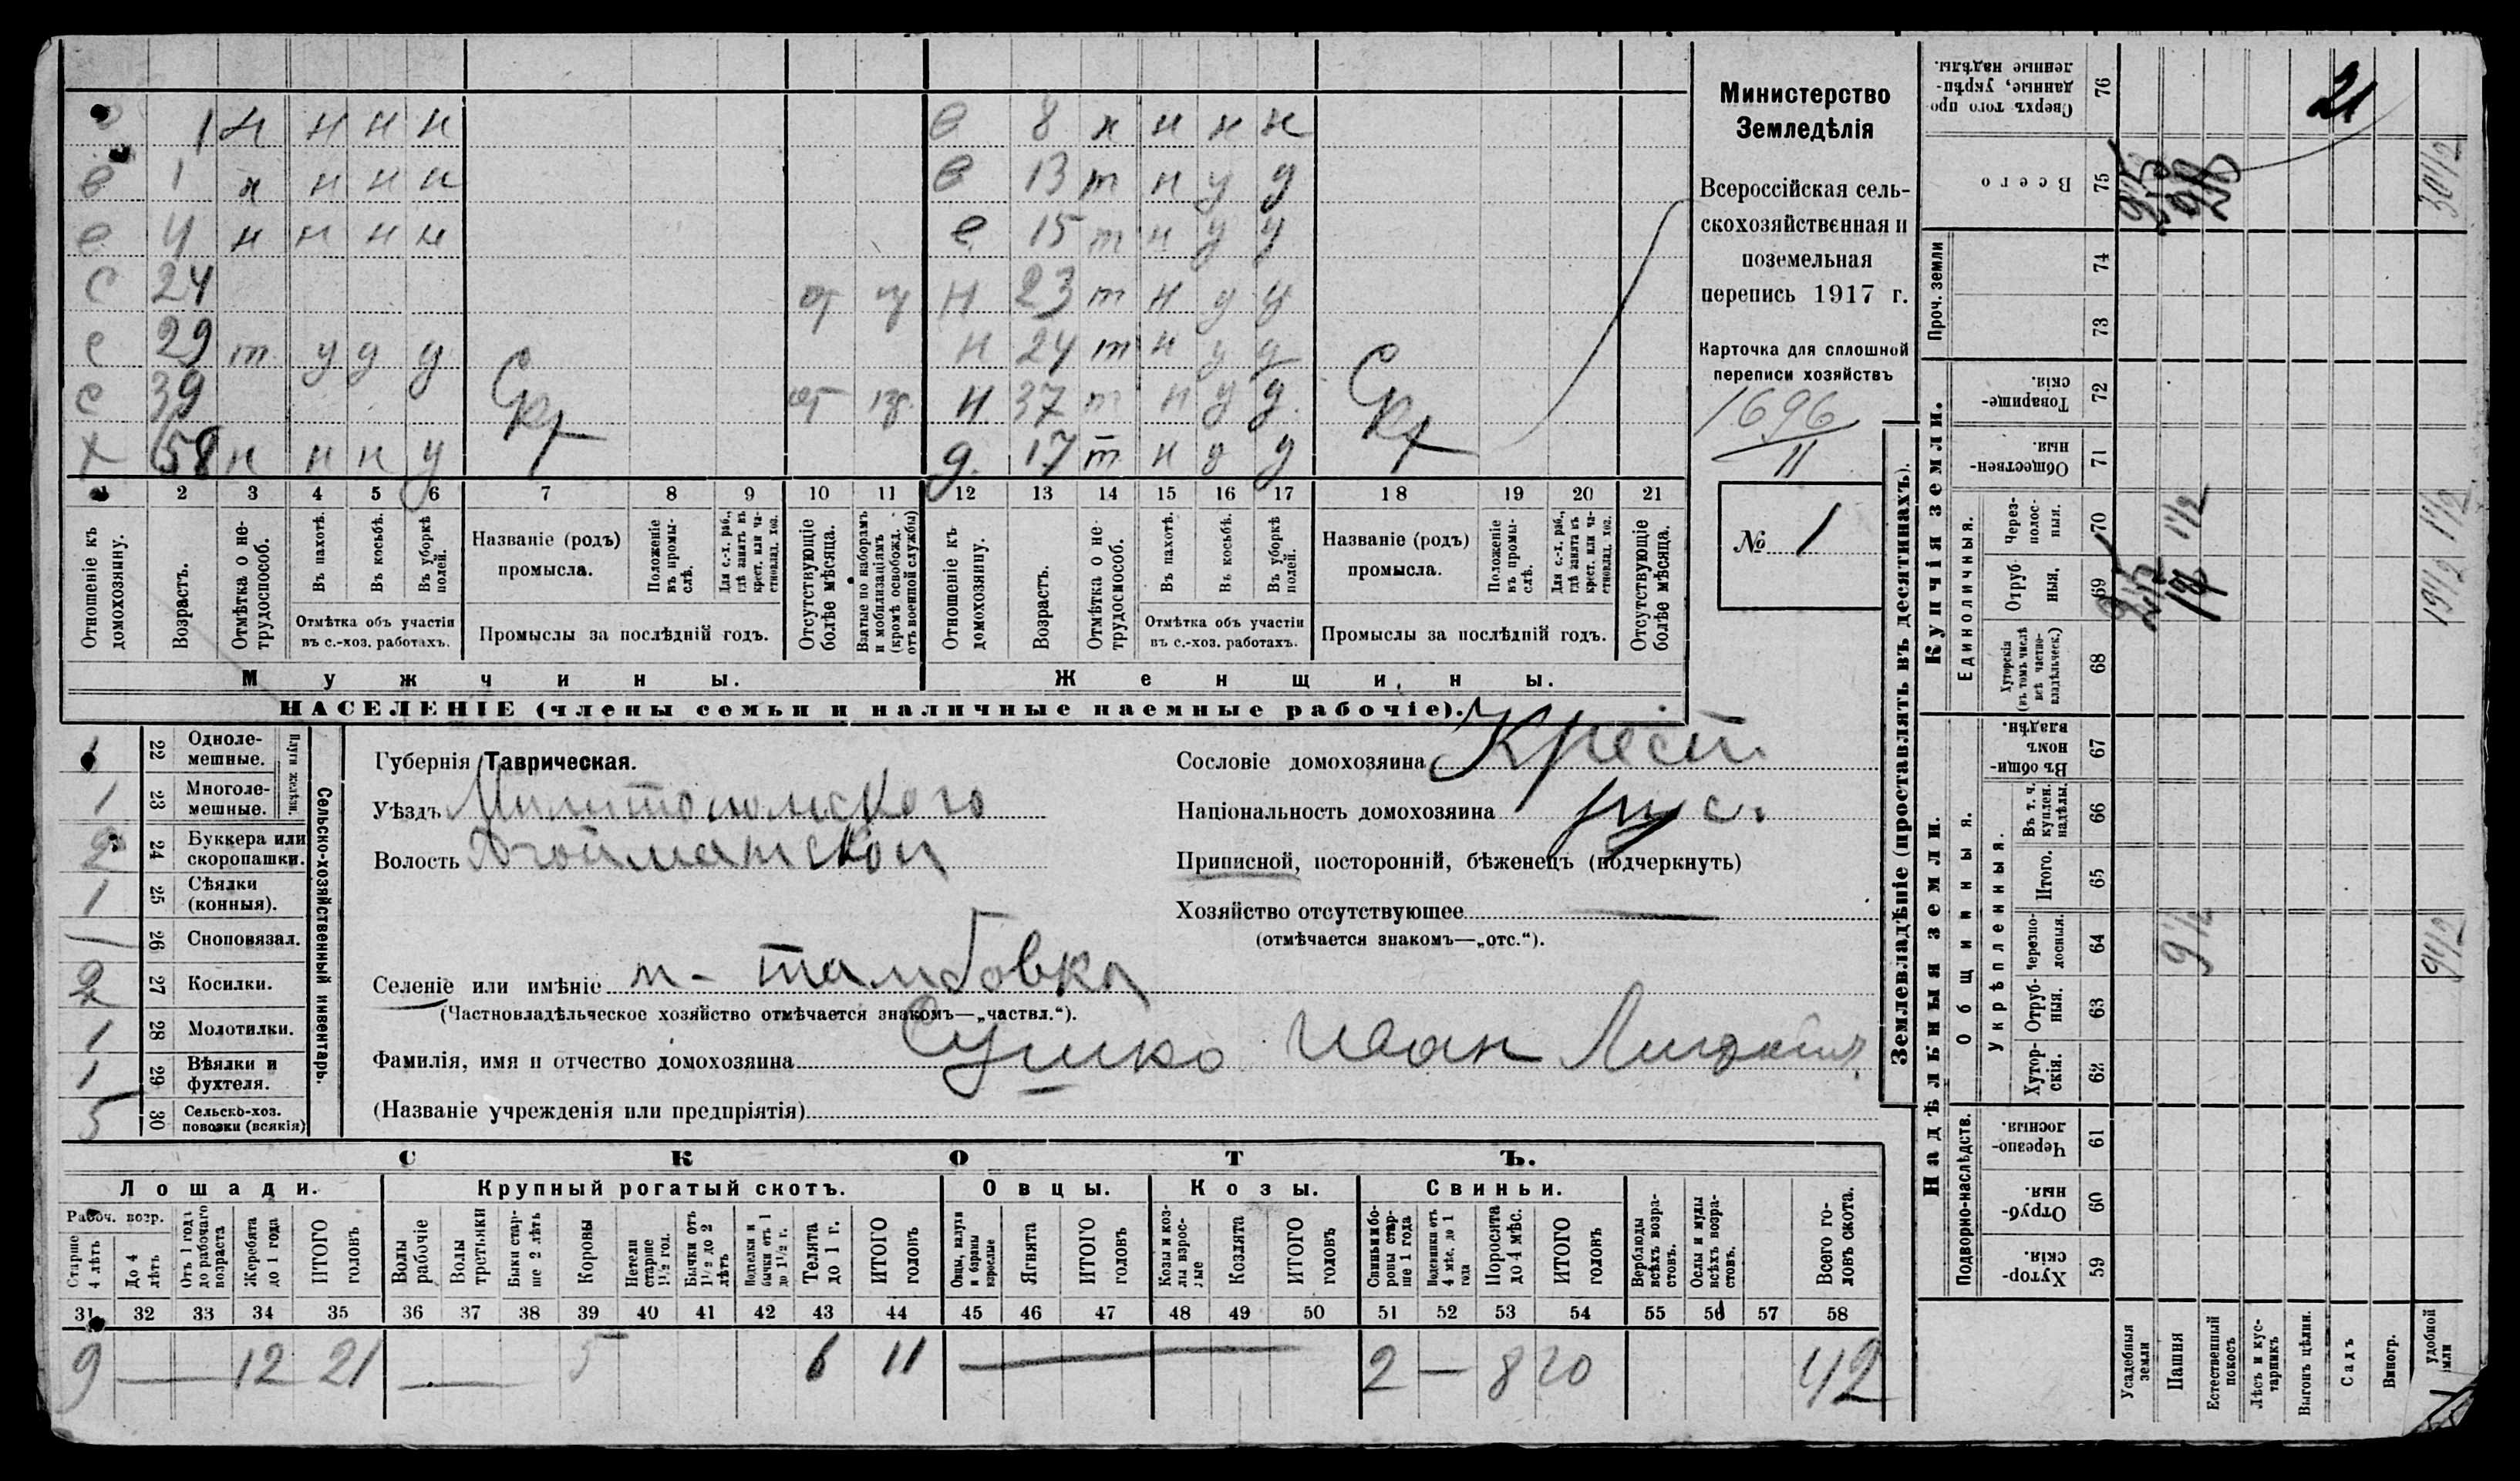 в 1 н н н н в 8 н н н н
в 1 н н н н в 13 т н у у
в 4 н н н н в 15 т н у у
с 24 от Н 23 т н у у
с 29 т у у у Н 24 т н у у
с 39 от Н. 37 т н у у.
Х 58 н н н у д. 17 т н у у
1 2 3 4 5 6 7 8 9 10 11 12 13 14 15 16 17 18 19 20 21
Отношеніе къ домохозяину.
Возрастъ.
Отмѣтка о нетрудоспособ.
Въ пахотѣ.
Въ косьбѣ.
Въ уборкѣ полей.
Отмѣтка объ участіи
въ с.-хоз. работахъ.
Названіе (родъ)
промысла.
Положеніе въ промыслѣ.
Для с.-х. раб., гдѣ занятъ въ крест. или частновлад. хоз.
Промыслы за послѣдній годъ.
Отсутствующіе болѣе мѣсяца.
Взятые по наборамъ и мобилизаціямъ (кромѣ освобожд. отъ военной службы)
Отношеніе къ домохозяину.
Возрастъ.
Отмѣтка о нетрудоспособ.
Въ пахотѣ.
Въ косьбѣ.
Въ уборкѣ полей.
Отмѣтка объ участіи
въ с.-хоз. работахъ.
Названіе (родъ)
промысла.
Положеніе въ промыслѣ.
Для с.-х. раб., гдѣ занята въ крест. или частновлад. хоз.
Промыслы за послѣдній годъ.
Отсутствующіе болѣе мѣсяца.
Мужчины. Женщины.
НАСЕЛЕНІЕ (члены семьи и наличные наемные рабочіе).
Министерство
Земледѣлія
Всероссійская сель-
скохозяйственная и
поземельная
перепись 1917 г.
Карточка для сплошной
переписи хозяйствъ
1696
11
№ 1
1 22 Однолемешные.
1 23 Многолемешные.
Плуги желѣзн.
2 24 Буккера или скоропашки.
1 25 Сѣялки (конныя).
— 26 Сноповязал.
2 27 Косилки.
1 28 Молотилки.
1 29 Вѣялки и фухтеля.
5 30 Сельско-хоз. повозки (всякія)
Сельско-хозяйственный инвентарь.
Губернія Таврическая.
Уѣздъ Мелитопольского
Волость Агойманской
Селеніе или имѣніе п - тамбовка
(Частновладѣльческое хозяйство отмѣчается знакомъ—„частвл.“).
Фамилія, имя и отчество домохозяина Сушко Иван
(Названіе учрежденія или предпріятія)
Сословіе домохозяина Крест.
Національность домохозяина рус.
Приписной, посторонній, бѣженецъ (подчеркнуть)
Хозяйство отсутствующее —
(отмѣчается знакомъ—„отс.“).
СКОТЪ.
Лошади. Крупный рогатый скотъ. Овцы. Козы. Свиньи.
Рабоч. возр.
Старше 4 лѣтъ
До 4 лѣтъ
Отъ 1 года до рабочаго возраста
Жеребята до 1 года
ИТОГО головъ
Волы рабочіе
Волы третьяки
Быки старше 2 лѣтъ
Коровы
Нетели старше 1½ год.
Бычки отъ 1½ до 2 лѣтъ
Подтелки и бычки отъ 1 до 1½ г.
Телята до 1 г.
ИТОГО головъ
Овцы, валухи и бараны взрослые
Ягнята
ИТОГО головъ
Козы и козлы взрослые
Козлята
ИТОГО головъ
Свиньи и боровы старше 1 года
Подсвинки отъ 4 мѣс. до 1 года
Поросята до 4 мѣс.
ИТОГО головъ
Верблюды всѣхъ возрастовъ.
Ослы и мулы всѣхъ возрастовъ.
Всего головъ скота.
31 32 33 34 35 36 37 38 39 40 41 42 43 44 45 46 47 48 49 50 51 52 53 54 55 56 57 58
9 — 12 21 — 5 6 11 — 2 — 8 10 42
Землевладѣніе (проставлять въ десятинахъ).
Сверхъ того проданные, укрѣпленные надѣлы. 76 21
Всего 75 30½
Проч. земли 74
73
Купчія земли.
Товарищескія. 72
Общественныя. 71
Единоличныя.
Черезполосныя. 70 1½ 1½
Отрубныя. 69 19½
Хуторскія (въ томъ числѣ всѣ частновладѣльческ.) 68
Надѣльныя земли.
Общинныя.
Въ общинномъ владѣн. 67
Укрѣпленныя.
Въ т. ч. куплен. надѣлы. 66
Итого. 65
Черезполосныя. 64 9½ 9½
Отрубныя. 63
Хуторскія. 62
Подворно-наслѣдств.
Черезполосныя. 61
Отрубныя. 60
Хуторскія. 59
Усадебныя земли
Пашня
Естественный покосъ
Лѣсъ и кустарникъ
Выгонъ цѣлин.
Садъ
Виногр.
удобной